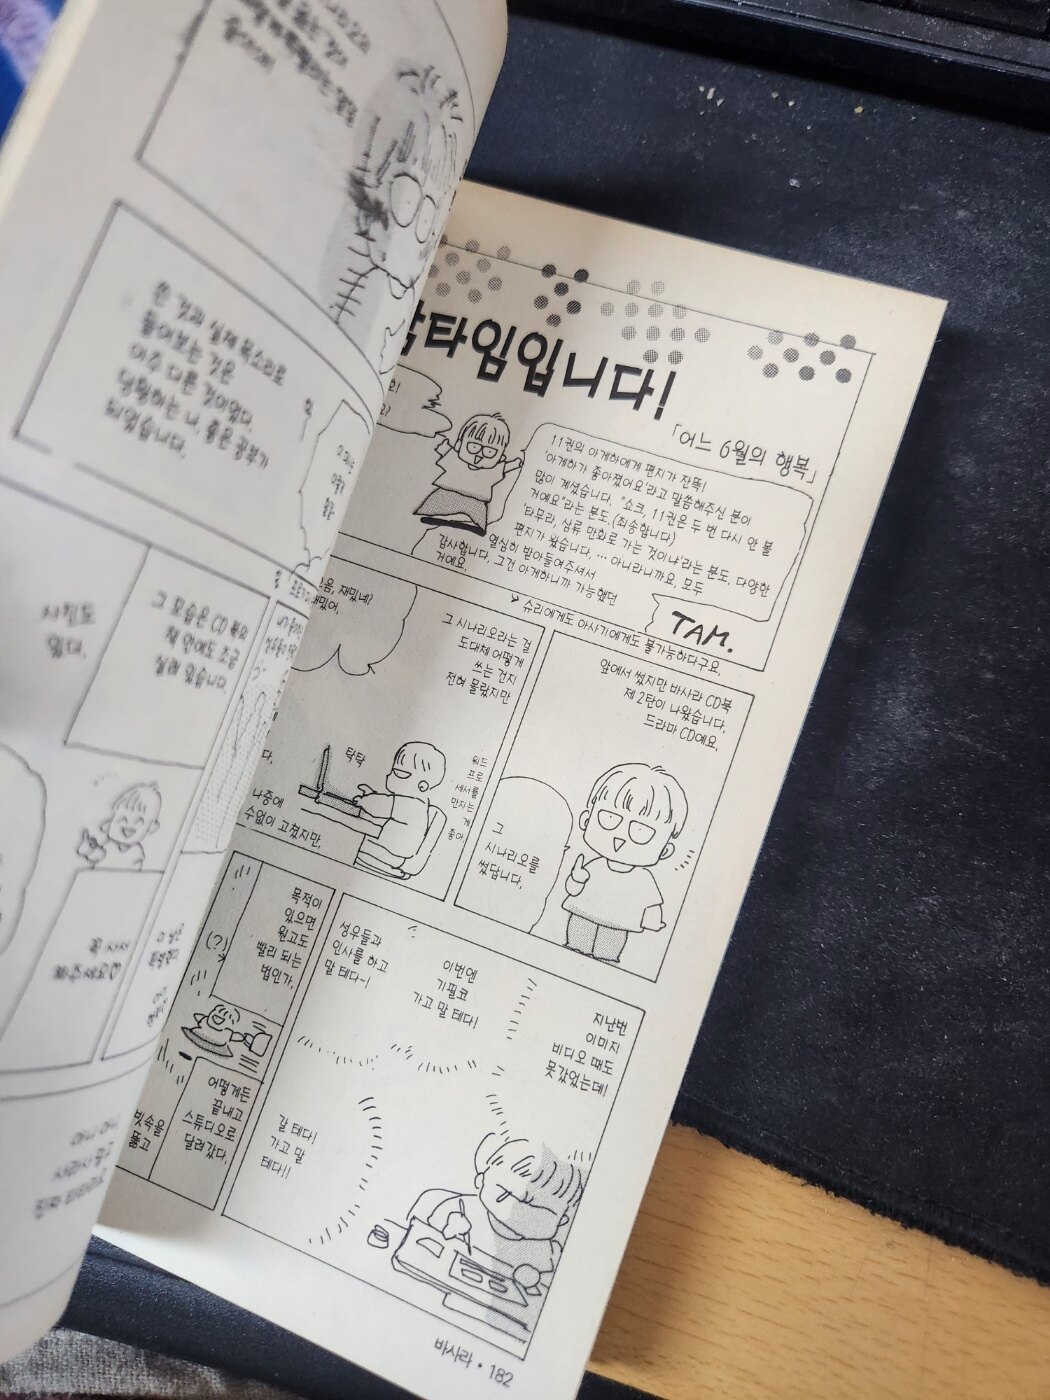 타임입니다!
「어느 6월의 행복」
11권의 아게하에게 편지가 잔뜩!
'아게하가 좋아졌어요'라고 말씀해주신 분이
많이 계셨습니다. "쇼크, 11권은 두 번 다시 안 볼
거예요"라는 분도.(죄송합니다)
'타무라, 삼류 만화로 가는 것이냐'라는 분도, 다양한
편지가 왔습니다, … 아니라니까요. 모두
열심히 받아들여주셔서
감사합니다, 그건 아게하니까 가능했던
거예요.
TAM.
슈리에게도 아사기에게도 불가능하다구요.
앞에서 썼지만 바사라 CD북
제 2탄이 나왔습니다,
드라마 CD예요,
그
시나리오를
썼답니다,
그 시나리오라는 걸
도대체 어떻게
쓰는 건지
전혀 몰랐지만
재밌네?
탁탁
워드
프로
세서를
만지는
게
좋아
나중에
수없이 고쳤지만,
지난번
이미지
비디오 때도
못갔었는데!
이번엔
기필코
가고 말 테다!
성우들과
인사를 하고
말 테다~!
갈 테다!
가고 말
테다!!
목적이
있으면
원고도
빨리 되는
법인가,
(?)
어떻게든
끝내고
스튜디오로
달려갔다,
빗속을
뚫고
바사라 · 182
쓴 것과 실제 목소리로
들어보는 것은
아주 다른 것이었다,
당황하는 나, 좋은 공부가
되었습니다,
그 모습은 CD 북의
책 안에도 조금
실려 있습니다
사진도
있다,
꼭 사서
봐주세요